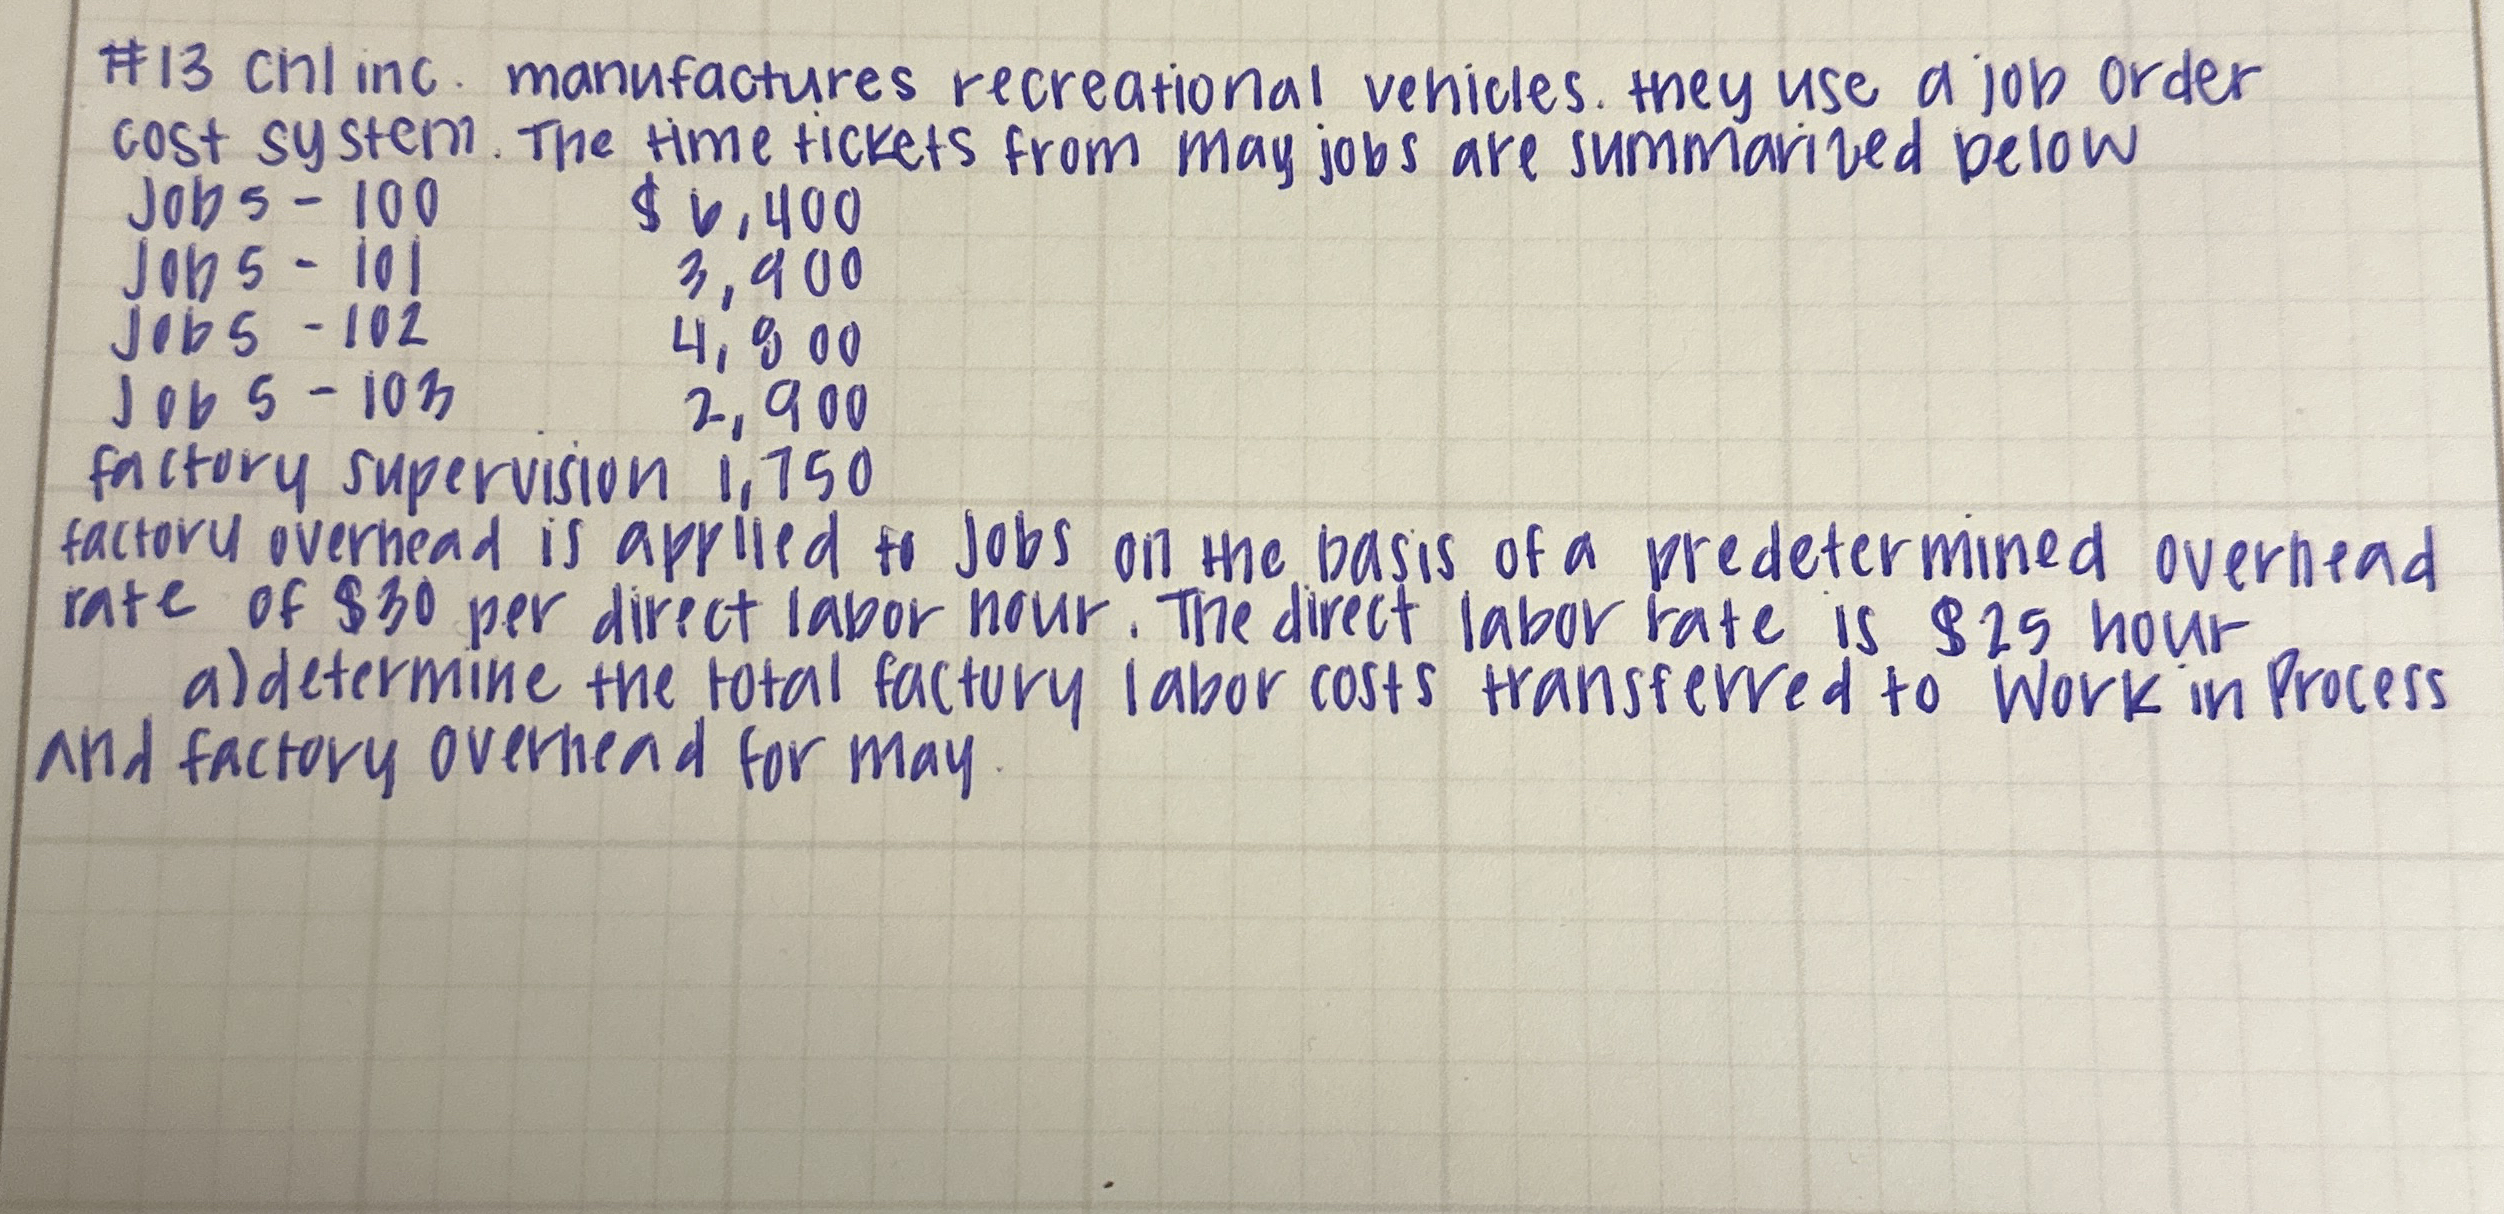 #13 cnl inc. manufactures recreational vehicles. they use a job order
cost system. The time tickets from may jobs are summarized below
Job 5 - 100 $ 6,400
Job 5 - 101 3,900
Job 5 - 102 4,800
Job 5 - 103 2,900
factory supervision 1,750
factory overhead is applied to Jobs on the basis of a predetermined overhead
rate of $30 per direct labor hour. The direct labor rate is $25 hour
a) determine the total factory labor costs transferred to Work in Process
and factory overhead for may.